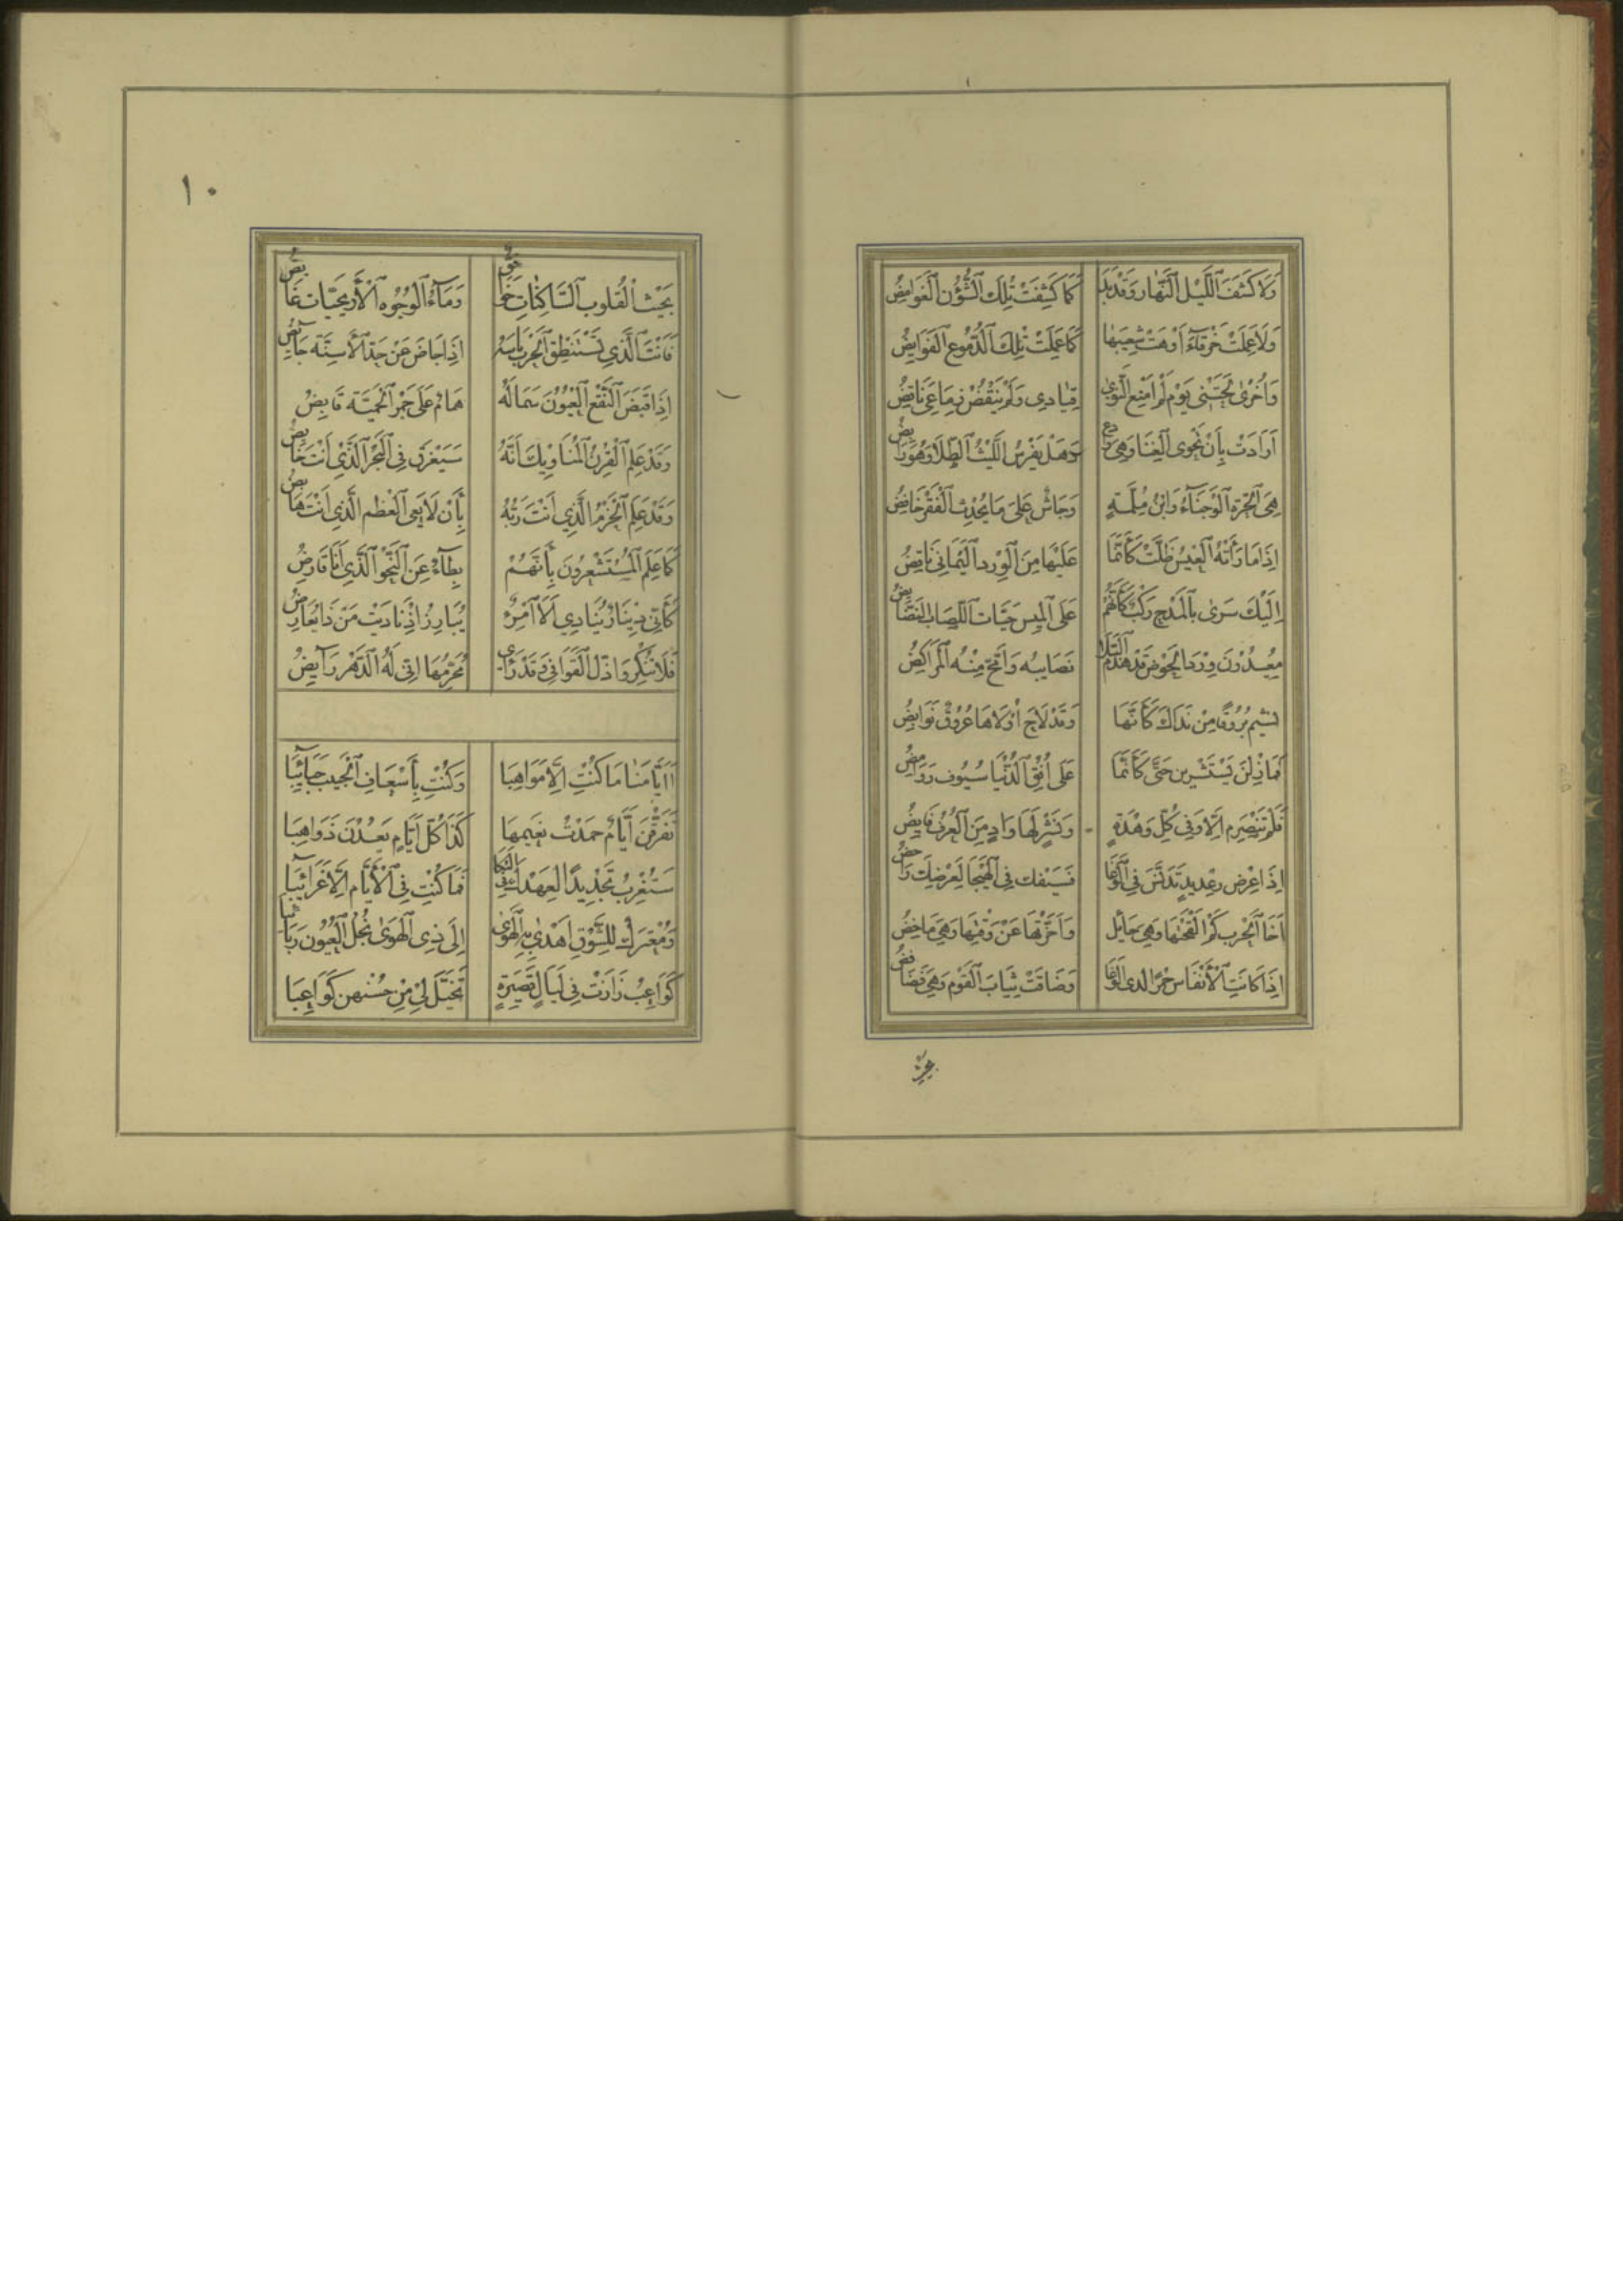 وَلَا كَشَفَ ٱللَّيْلُ ٱلنَّهَارَ وَقَدْ بَدَا كَمَا كَشَفَتْ تِلْكَ ٱلشُّؤُنُ ٱلْغَوَامِضُ
وَلَا عَمِلَتْ خَرْقَآءُ أَوْهَتْ شَعِيبَهَا كَمَا عَمِلَتْ تِلْكَ ٱلدُّمُوعُ ٱلْفَوَايِضُ
وَأُخْرَىٰ لَحَتْنِى يَوْمَ لَمْ أَمْنَعِ ٱلنَّوَىٰ قِيَادِى وَلَمْ يَنْقُضْ زَمَاعِىَ نَاقِضُ
أَرَادَتْ بِأَنْ يَحْوِى ٱلْغِنَا وَهِىَ وَادِعٌ وَهَلْ يَفْرِسُ ٱللَّيْثُ ٱلطِّلَا وَهُوَ رَابِضُ
هِىَ ٱلْحُرَّةُ ٱلْوَجْنَآءُ وَٱبْنُ مُلِمَّةٍ وَجَاشٌ عَلَىٰ مَا يُحْدِثُ ٱلْفَقْرُ خَافِضُ
إِذَا مَا رَأَتْهُ ٱلْعِيسُ ظَلَّتْ كَأَنَّمَا عَلَيْهَا مِنَ ٱلْوِرْدِ ٱلْيَمَانِيِّ نَافِضُ
إِلَيْكَ سَرَىٰ بِٱلْمَدْحِ رَكْبٌ كَأَنَّهُمْ عَلَى ٱلْمَيْسِ حَيَّاتُ ٱللِّصَابِ ٱلنَّضَانِضُ
مُعِيدُونَ وِرْدَ ٱلْحَوْضِ قَدْ هَدَّمَ ٱلْبِلَا نَصَايِبَهُ وَٱمَّحَ مِنْهُ ٱلْمَرَاكِضُ
نَشِيمُ بُرُوقًا مِنْ نَدَاكَ كَأَنَّهَا وَقَدْ لَاحَ أُولَاهَا عُرُوقٌ نَوَابِضُ
فَمَا زِلْنَ يَسْتَشْرِينَ حَتَّى كَأَنَّمَا عَلَى أُفُقِ ٱلدُّنْيَا سُيُوفٌ رَوَامِضُ
فَلَمْ تَنْصَرِمْ إِلَّا وَفِى كُلِّ وَهْدَةٍ وَنَشْزٍ لَهَا وَادٍ مِنَ ٱلْعُرْفِ فَايِضُ
إِذَا عِرْضُ رِعْدِيدٍ تَدَنَّسَ فِى ٱلْوَغَا فَسَيْفُكَ فِى ٱلْهَيْجَا لِعِرْضِكَ رَاحِضُ
أَخَا ٱلْحَرْبِ كَمْ أَلْقَحْتَهَا وَهِىَ حَايِلٌ وَأَخَّرْتَهَا عَنْ وَقْتِهَا وَهِىَ مَاخِضُ
إِذَا كَانَتِ ٱلْأَنْفَاسُ جَمْرًا لَدَى ٱلْوَغَا وَضَاقَتْ ثِيَابُ ٱلْقَوْمِ وَهِىَ فَضَافِضُ
بحيث
١٠
بِحَيْثُ ٱلْقُلُوبُ ٱلسَّاكِنَاتُ خَوَافِقٌ وَمَآءُ ٱلْوُجُوهِ ٱلْأَرْيَحِيَّاتِ غَايِضُ
فَأَنْتَ ٱلَّذِي تَسْتَنْطِقُ ٱلْحَرْبُ بِٱسْمِهِ إِذَا جَاضَ عَنْ حَدِّ ٱلْأَسِنَّةِ جَآيِضُ
إِذَا قَبَضَ ٱلنَّقْعُ ٱلْعُيُونَ سَمَا لَهُ هُمَامٌ عَلَى جَمْرِ ٱلْحَمِيَّةِ قَابِضُ
وَقَدْ عَلِمَ ٱلْقِرْنُ ٱلْمُنَاوِيكَ أَنَّهُ سَيَغْرَقُ فِى ٱلْبَحْرِ ٱلَّذِى أَنْتَ خَايِضُ
وَقَدْ عَلِمَ ٱلْحَزْمُ ٱلَّذِي أَنْتَ رَبُّهُ بِأَنْ لَا يَعِى ٱلْعَظْمُ ٱلَّذِى أَنْتَ هَايِضُ
كَمَا عَلِمَ ٱلْمُسْتَشْعِرُونَ بِأَنَّهُمْ بِطَآءٌ عَنِ ٱلنَّحْوِ ٱلَّذِى أَنَا قَارِضُ
كَأَنِّى دِينَارٌ يُنَادِي أَلَا ٱمْرُءٌ يُبَارِزُ إِذْ نَادَيْتُ مَنْ ذَا يُعَارِضُ
فَلَا تُنْكِرُوا ذُلَّ ٱلْقَوَافِى فَقَدْ رَأَى مُحَرَّمُهَا إِنِّى لَهُ ٱلدَّهْرَ رَآيِضُ
أَأَيَّامَنَا مَا كُنْتِ إِلَّا مَوَاهِبَا وَكُنْتِ بِإِسْعَافِ ٱلْحَبِيبِ حَبَآئِبَا
تَفَرَّقْنَ أَيَّامٌ حَمِدْتُ نَعِيمَهَا كَذَا كُلُّ أَيَّامٍ يَعُدْنَ ذَوَاهِبَا
سَتُغْرِبُ تَجْدِيدًا لِعَهْدِكِ فِى ٱلْبُكَا فَمَا كُنْتِ فِى ٱلْأَيَّامِ إِلَّا غَرَآئِبَا
وَمُعْتَرَكٍ لِلشَّوْقِ أَهْدَىٰ بِهِ ٱلْهَوَىٰ إِلَى ذِى ٱلْهَوَىٰ نُجْلَ ٱلْعُيُونِ رَبَائِبَا
كَوَاعِبُ زَارَتْ فِى لَيَالٍ قَصِيرَةٍ تَخَيَّلُ لِى مِنْ حُسْنِهِنَّ كَوَاعِبَا